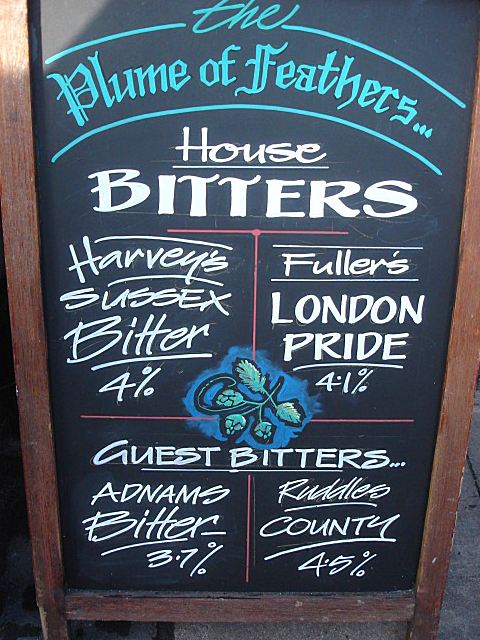 the
Plume of Feathers...
House
BITTERS
Harvey's
SUSSEX
Bitter
4%
Fuller's
LONDON
PRIDE
4·1%
GUEST BITTERS...
ADNAMS
Bitter
3·7%
Ruddles
COUNTY
4·5%